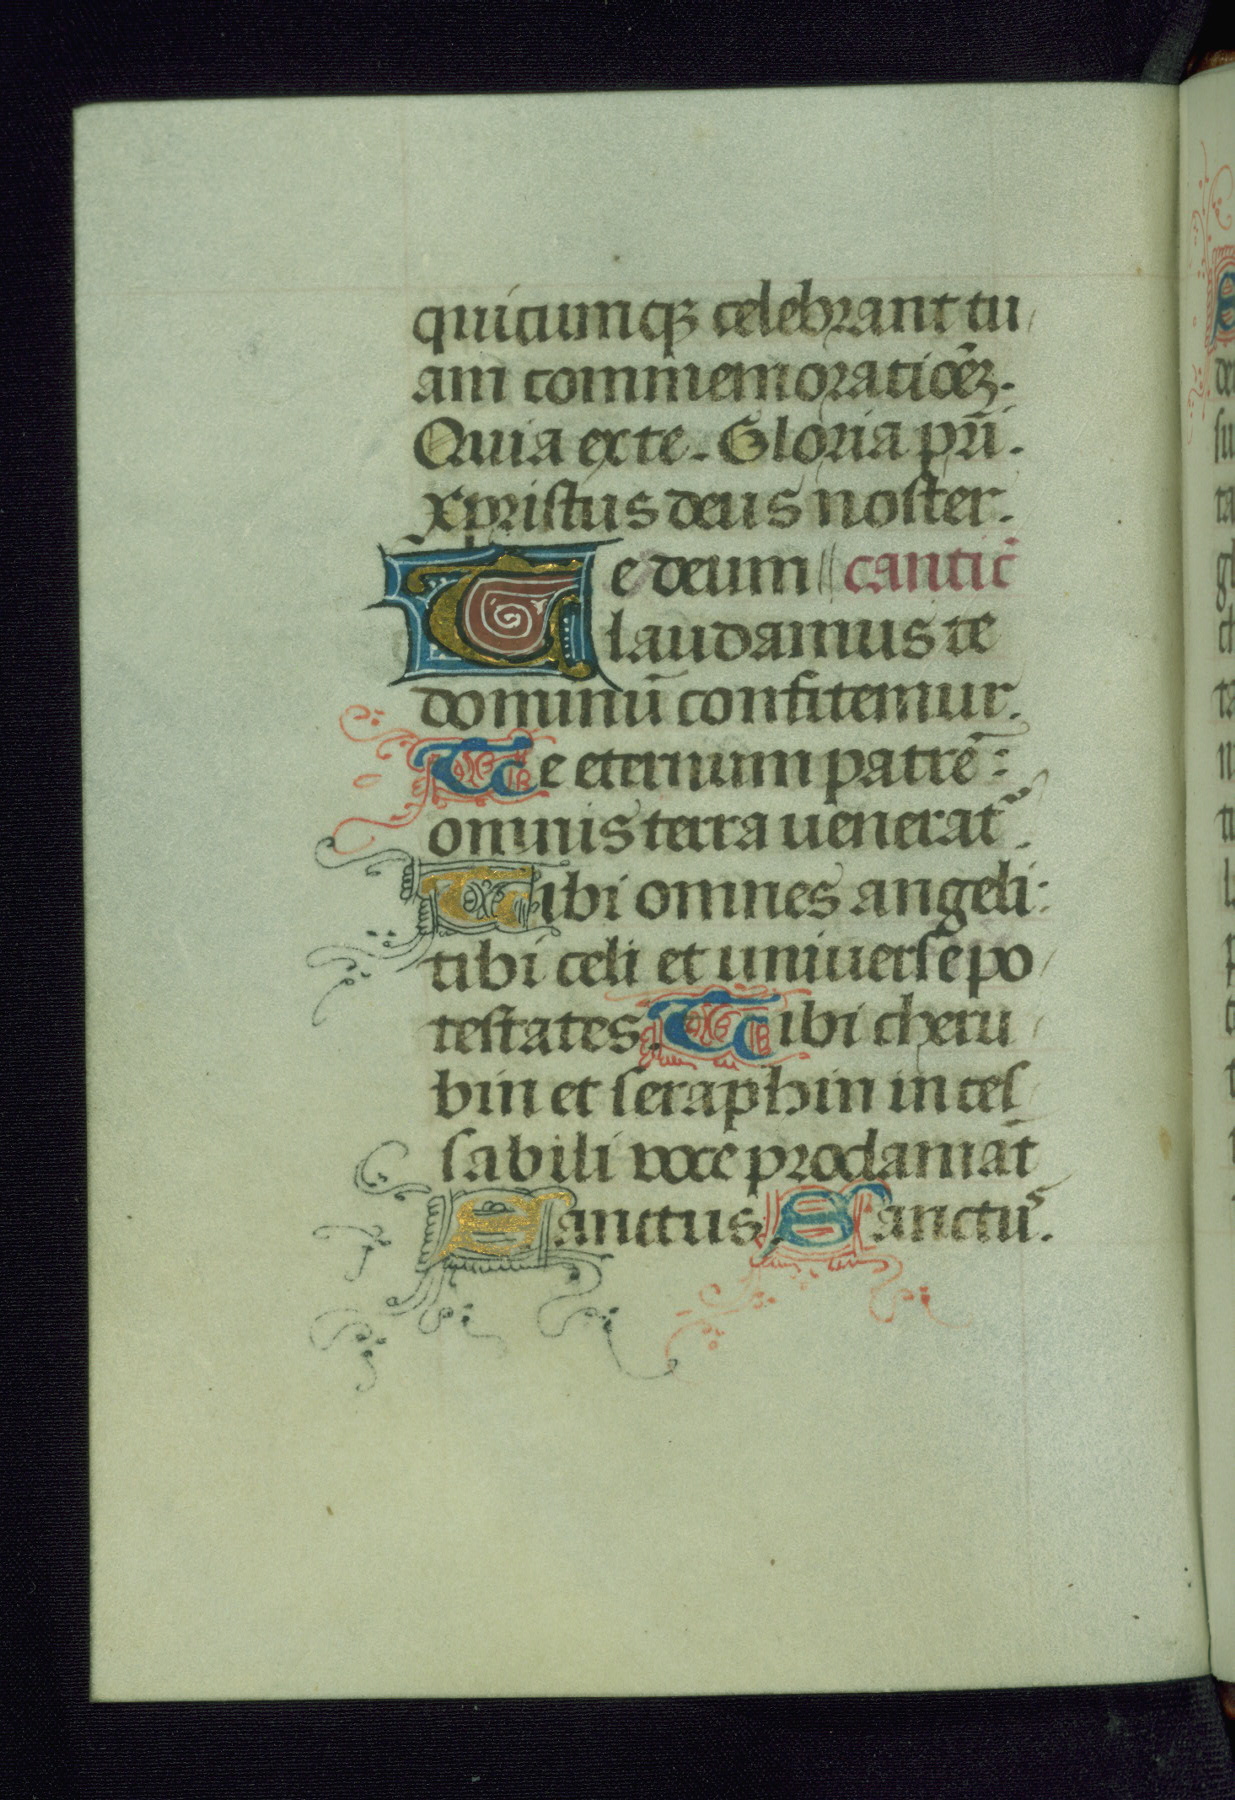 quicumqꝫ celebrant tu
am commemoratiōēꝫ.
Quia ex te. Gloria pr̄i.
xpristus deus noster.
Te deum cantic̄
laudamus te
dominū confitemur.
Te eternum patrē:
omnis terra venerat᷑.
Tibi omnes angeli:
tibi celi et universe po
testates. Tibi cheru
bin et seraphin in ces
sabili voce proclamāt
Sanctus. Sanctus.